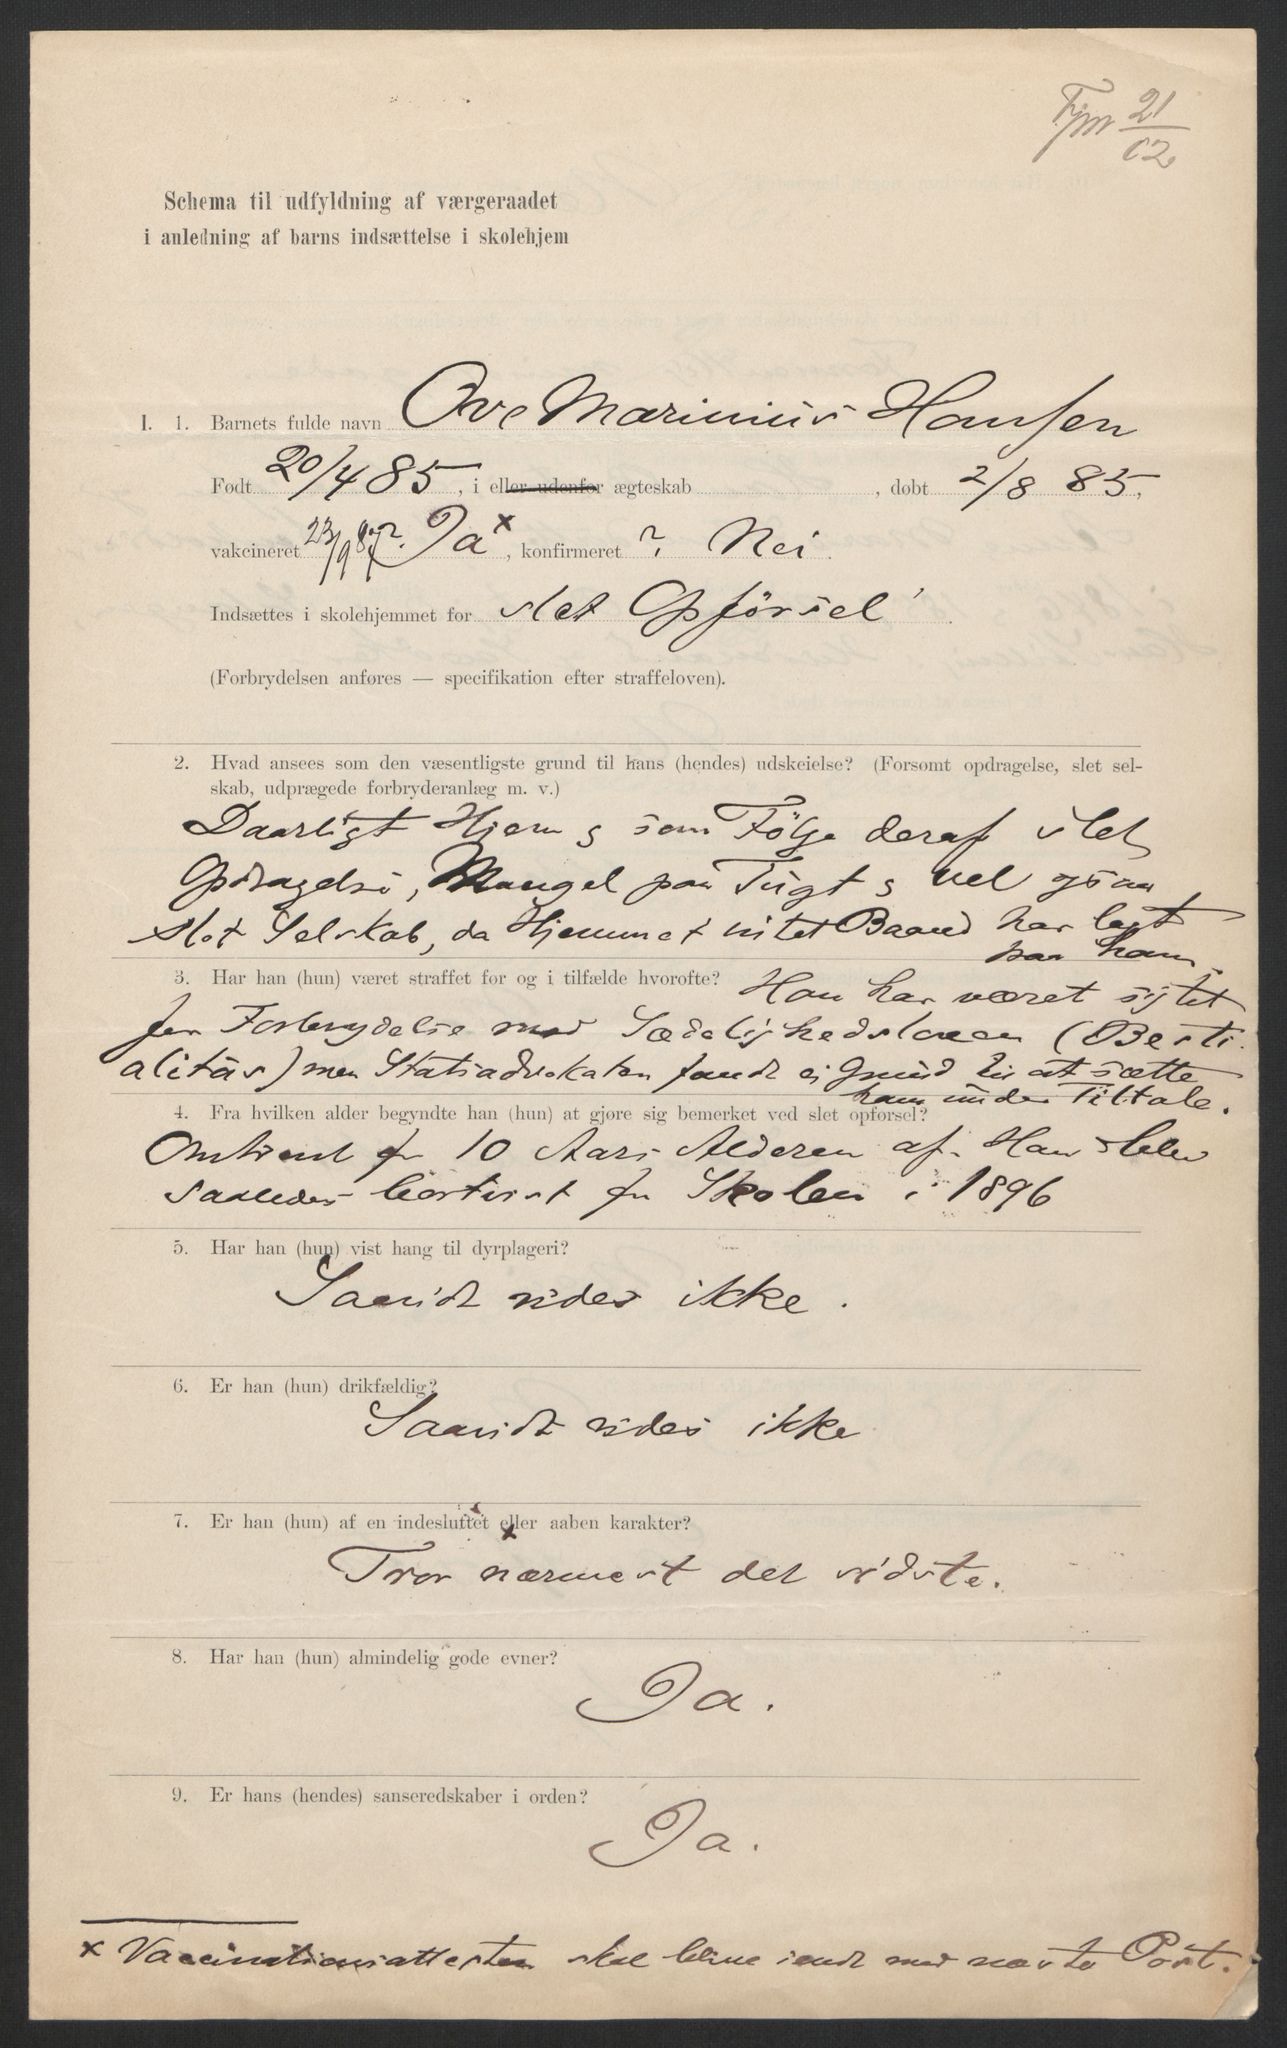 21/02
Schema til udfyldning af værgeraadet
i anledning af barns indsættelse i skolehjem
I. 1. Barnets fulde navn Ove Marinius Hansen
Født 20/4 85, i eller udenfor ægteskab , døbt 2/8 85.
vakcineret 23/9 87?. Ja x, konfirmeret ? Nei.
Indsættes i skolehjemmet for slet Opførsel
(Forbrydelsen anføres — specifikation efter straffeloven).
2. Hvad ansees som den væsentligste grund til hans (hendes) udskeielse? (Forsømt opdragelse, slet sel-
skab, udprægede forbryderanlæg m. v.)
Daarligt Hjem g som Følge deraf slet
Opdragelse, Mangel paa Tugt g vel ogsaa
slet Selskab, da Hjemmet intet Baand har lagt
paa ham.
3. Har han (hun) været straffet før og i tilfælde hvorofte? Han har været sigtet
for Forbrydelse mod Sædelighedsloven (Besti-
alitas) men Statsadvokaten fandt ei Grund til at sætte
ham under Tiltale.
4. Fra hvilken alder begyndte han (hun) at gjøre sig bemerket ved slet opførsel?
Omtrent fra 10 Aars Alderen af. Han blev
saaledes bortvist fra Skolen i 1896
5. Har han (hun) vist hang til dyrplageri?
Saavidt vides ikke.
6. Er han (hun) drikfældig?
Saavidt vides ikke
7. Er han (hun) af en indesluttet eller aaben karakter?
Tror nærmest det sidste.
8. Har han (hun) almindelig gode evner?
Ja.
9. Er hans (hendes) sanseredskaber i orden?
Ja.
x Vaccinationsattesten skal blive sendt med næste Post.